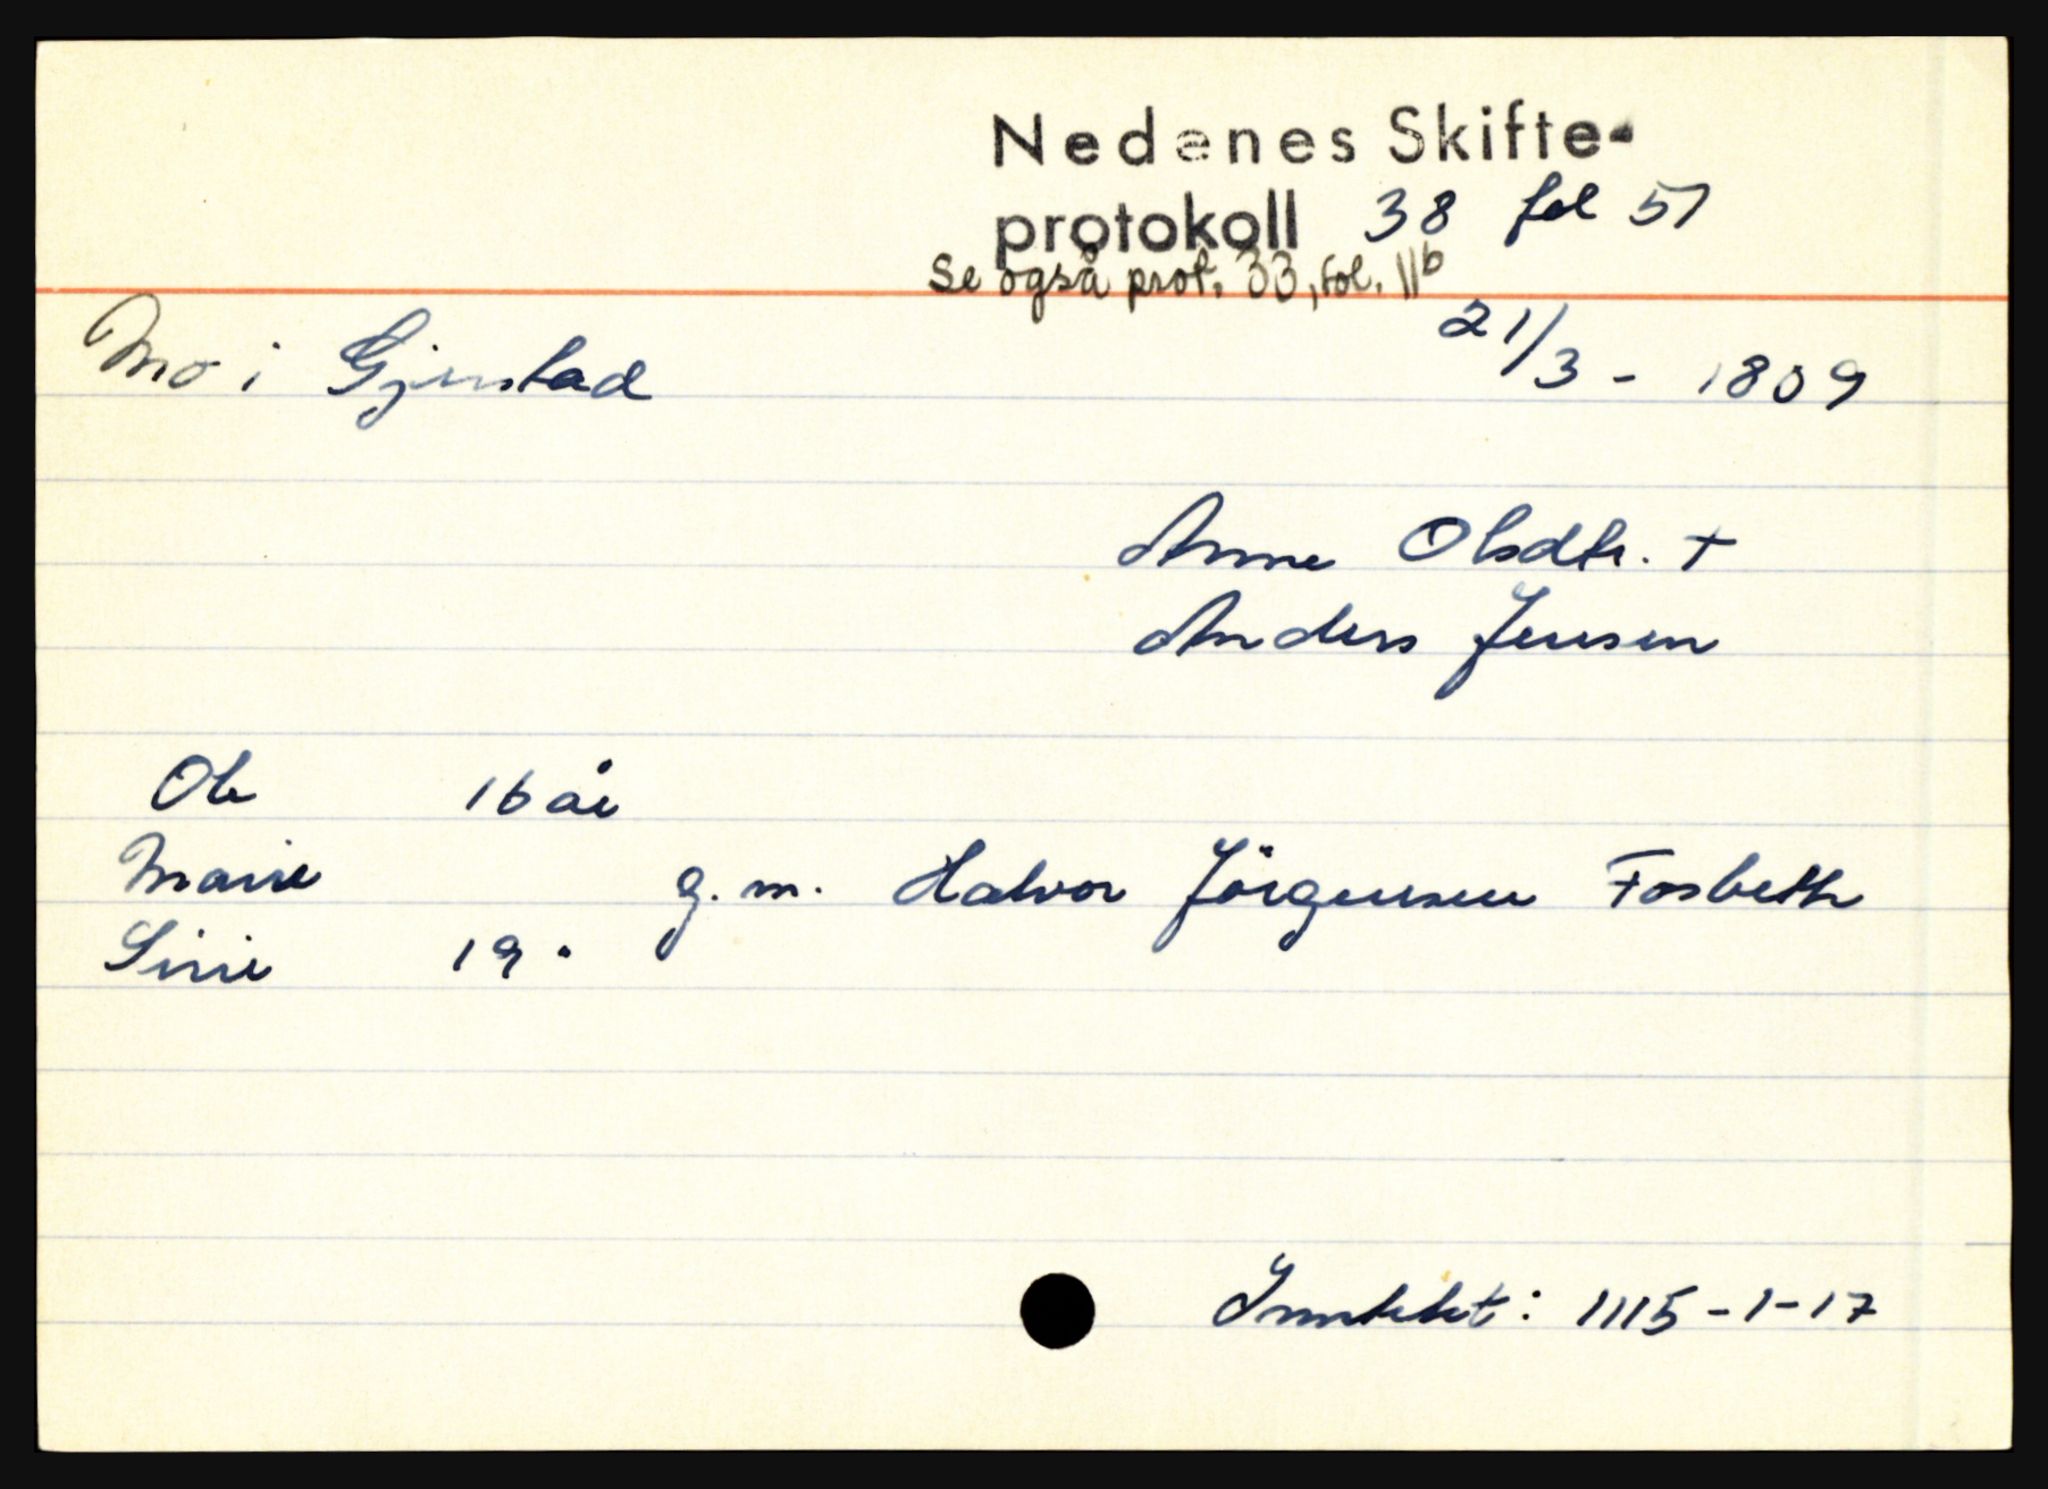 Nedenes Skifte-
protokoll 38 fol 57
Se også prot. 33, fol. 11b
Mo i Gjerstad 21/3 - 1809
Anne Olsdtr. +
Anders Jensen
Ole 16 år
Marie g.m. Halvor Jörgensen Fosbeth
Sirie 19 "
Inntekt: 1115-1-17